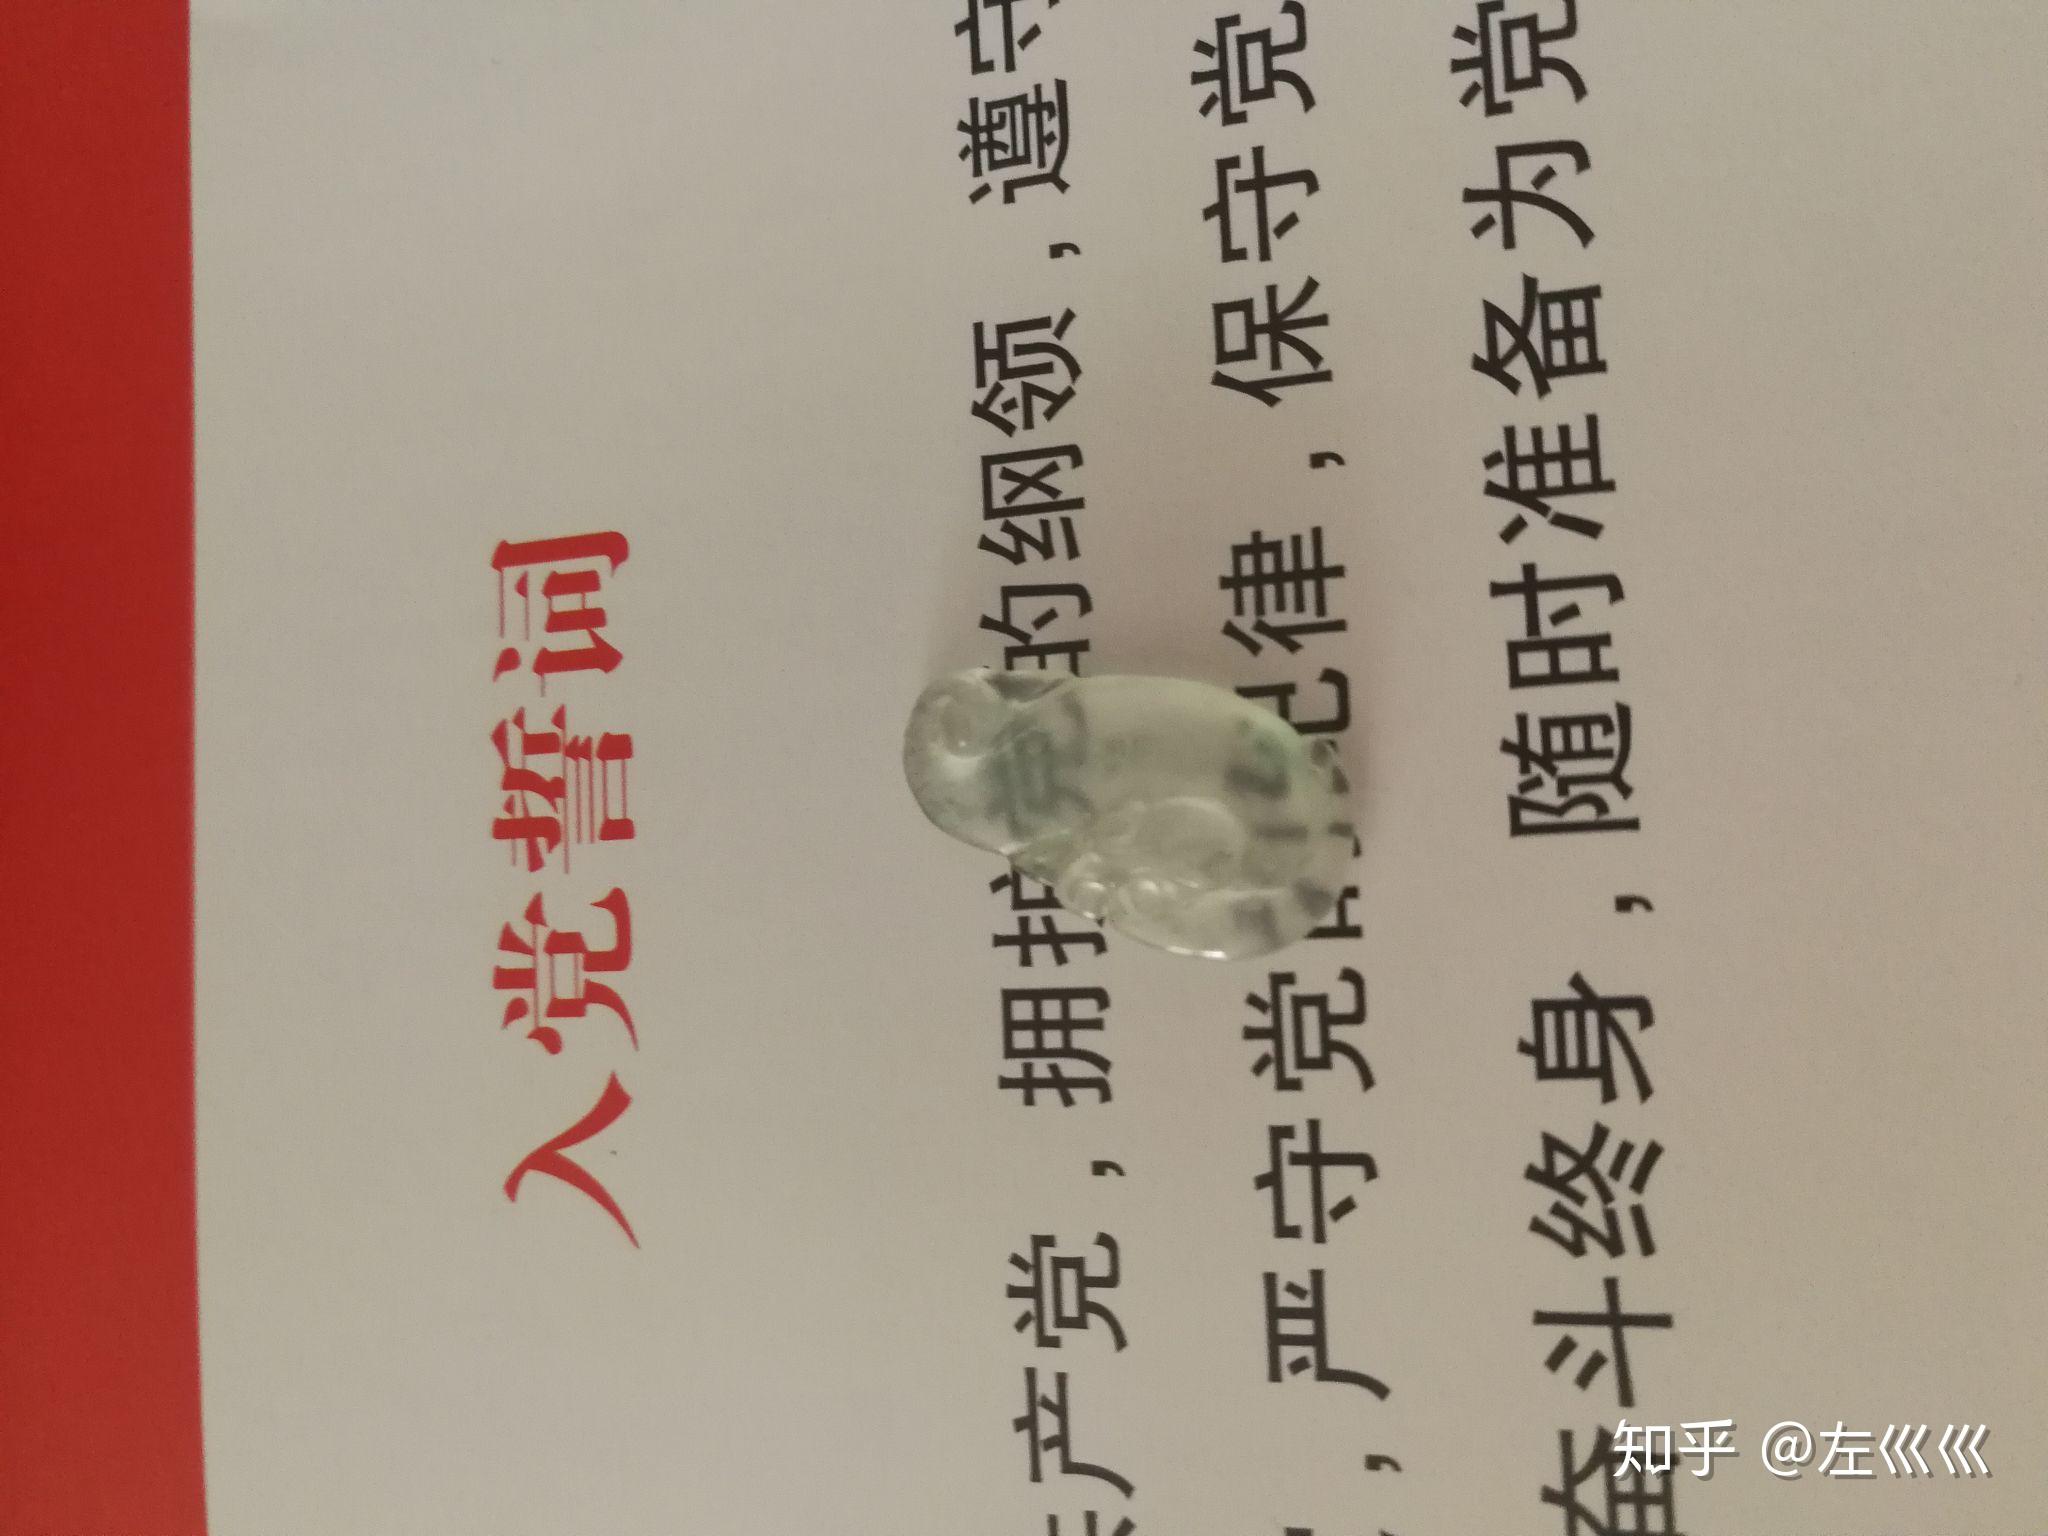 入党誓词
产党，拥护党的纲领，遵守
，严守党的纪律，保守党
奋斗终身，随时准备为党
知乎 @左巛巛